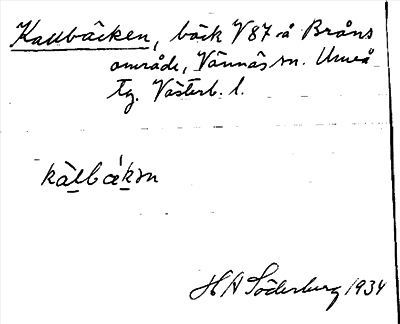 Kallbäcken, bäck V87 å Bråns
område, Vännäs sn. Umeå
tg. Västerb. l.
kàlbákən
H A Söderburg 1934